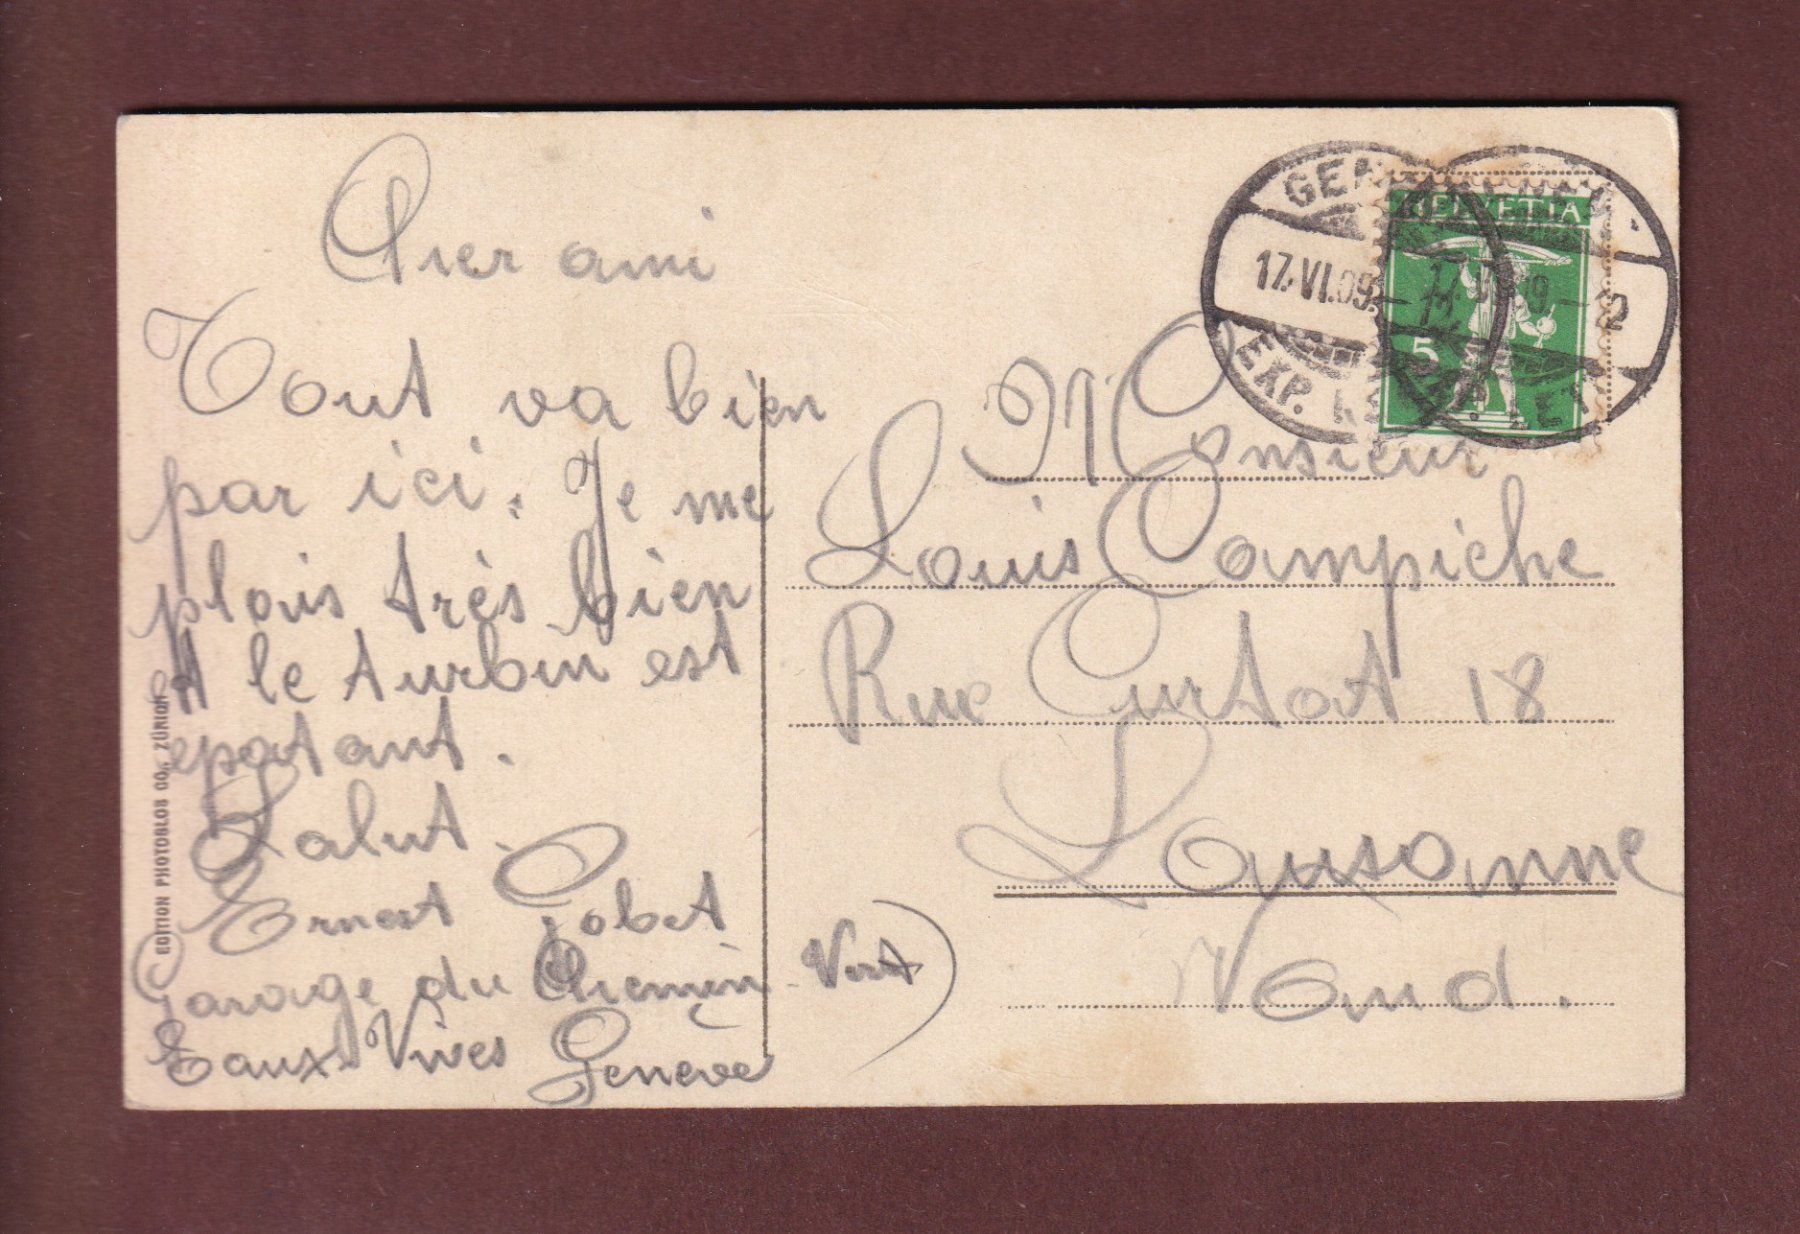 Cher ami
Tout va bien
par ici. Je me
plais très bien
et le turbin est
epatant.
Salut.
Ernest Gobet
Garage du Chemin-Vert
Eaux-Vives Genève
EDITION PHOTOGLOB CO., ZÜRICH
HELVETIA
5
17.VI.09.
EXP.
Monsieur
Louis Campiche
Rue Curtat 18
Lausanne
Vaud.